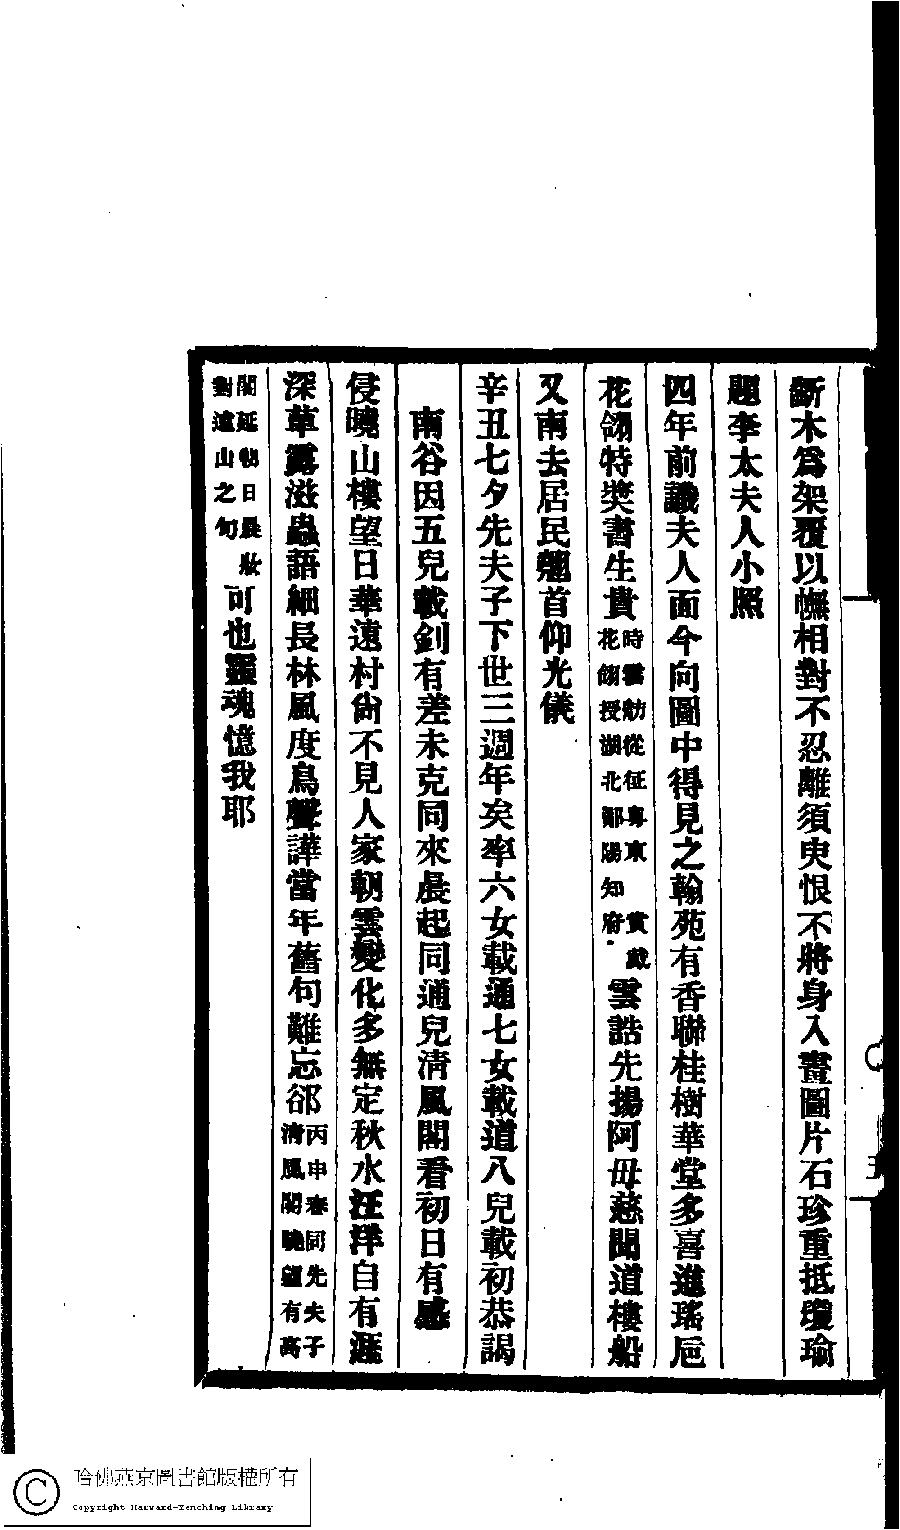 斲木爲架覆以幠相對不忍離須臾恨不將身入畫圖片石珍重抵瓊瑜
題李太夫人小照
四年前識夫人面今向圖中得見之翰苑有香聯桂樹華堂多喜進瑤巵
花翎特奬書生貴
時雲舫從征粤東 賞戴
花翎授湖北鄖陽知府
雲誥先揚阿母慈聞道樓船
又南去居民翹首仰光儀
辛丑七夕先夫子下世三週年矣率六女載通七女載道八兒載初恭謁
南谷因五兒載釗有差未克同來晨起同通兒淸風閣看初日有感
侵曉山樓望日華遠村尙不見人家朝雲變化多無定秋水汪洋自有涯
深草露滋蟲語細長林風度鳥聲譁當年舊句難忘郤
丙申春同先夫子
淸風閣曉望有高
閣延朝日晨妝
對遠山之句
可也靈魂憶我耶
五
哈佛燕京圖書館版權所有
Copyright Harvard-Yenching Library